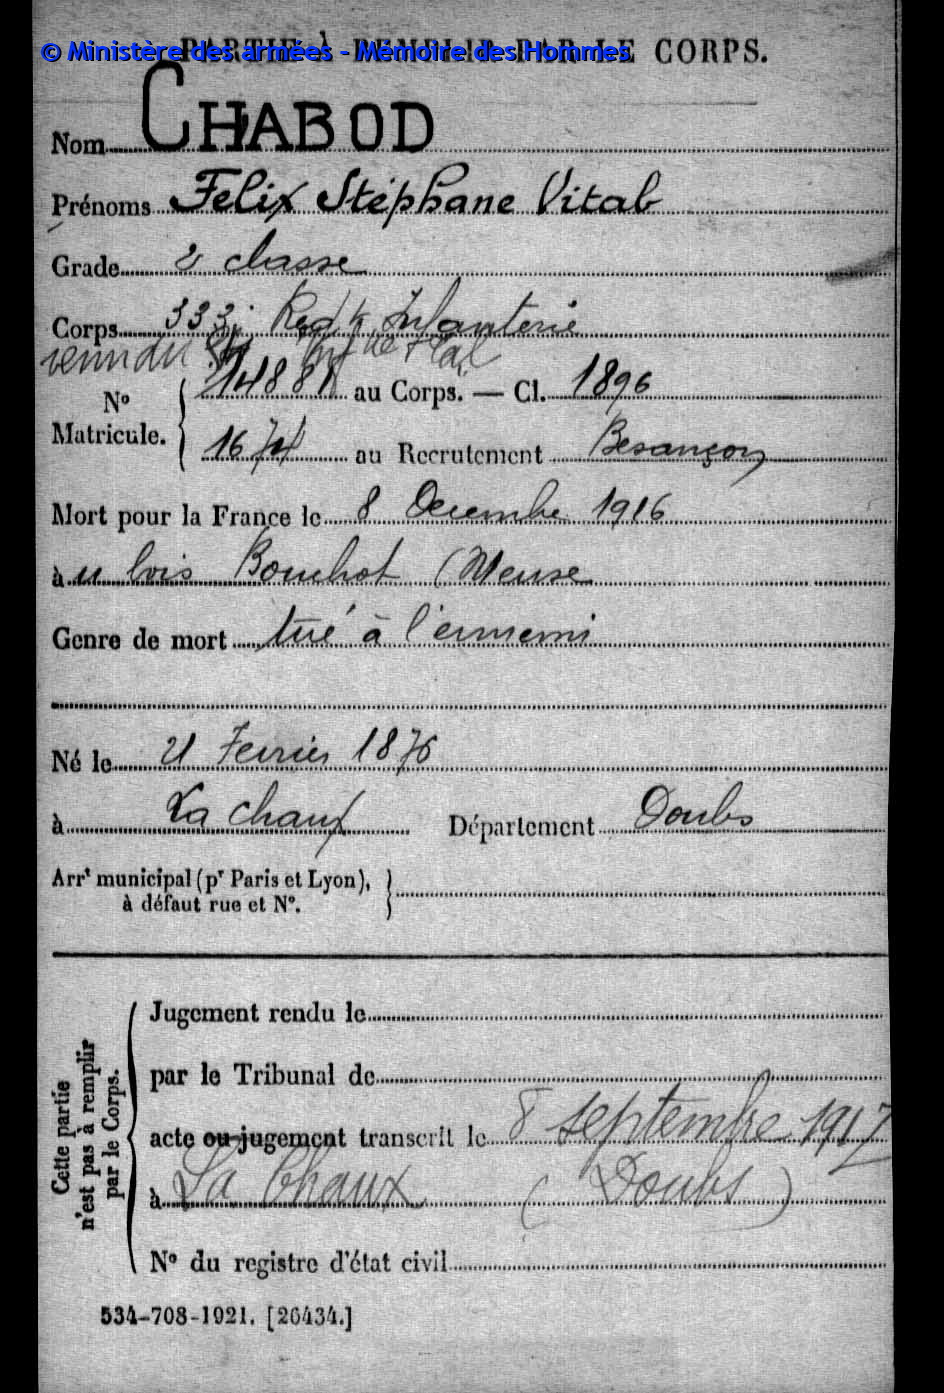 © Ministère des armées - Mémoire des Hommes
PARTIE À REMPLIR PAR LE CORPS.
Nom CHABOD
Prénoms Felix Stéphane Vital
Grade 2 classe
Corps 333 Regt Infanterie
venu du
No Matricule. { 14881 au Corps. — Cl. 1896
1674 au Recrutement Besançon
Mort pour la France le 8 Decembre 1916
à u bois Bouchot (Meuse
Genre de mort tué à l'ennemi
Né le 21 Fevrier 1876
à La chaux Département Doubs
Arrt municipal (pr Paris et Lyon),
à défaut rue et No.
Cette partie
n'est pas à remplir
par le Corps.
Jugement rendu le
par le Tribunal de
acte ou jugement transcrit le 8 septembre 1917
à La Chaux (Doubs)
No du registre d'état civil
534-708-1921. [26434.]